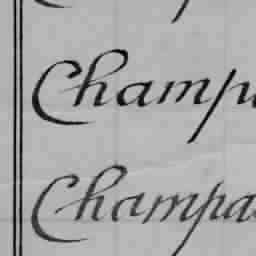 Champ
Champa